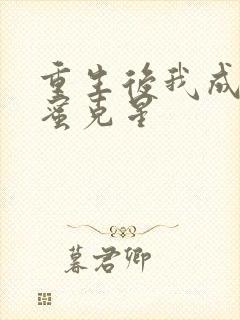 重生后我成
蜜克星
暮君卿